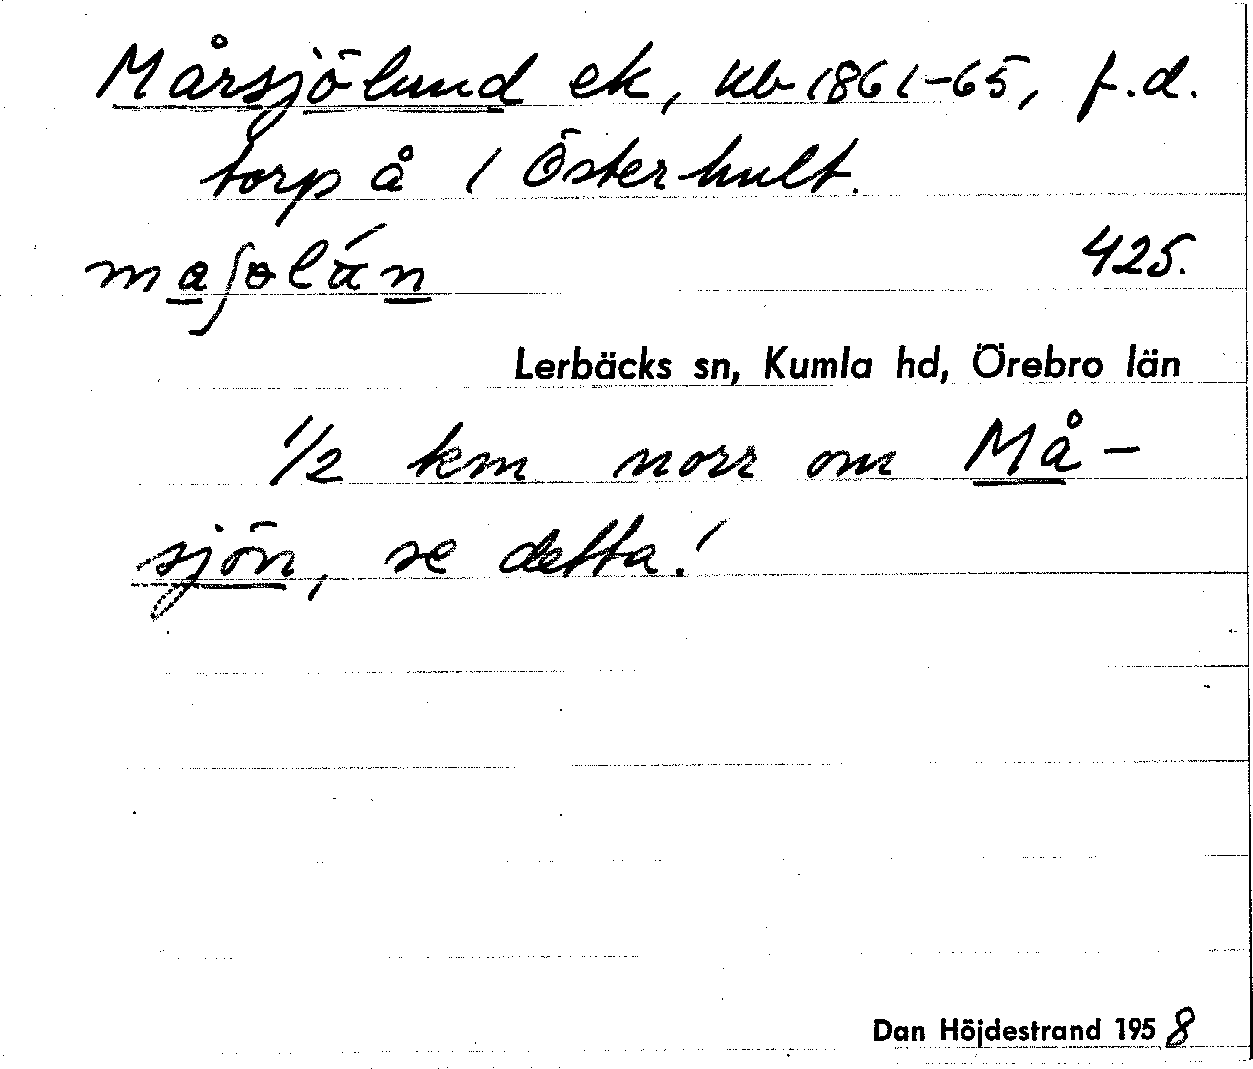 Mårsjölund ek, kb 1861-65, f.d.
torp å 1 Österhult.
425.
Lerbäcks sn, Kumla hd, Örebro län
1/2 km norr om Må-
sjön, se detta!
Dan Höjdestrand 1958